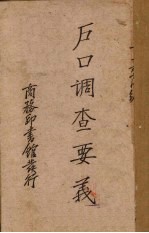 户口调查要义
商務印書館發行